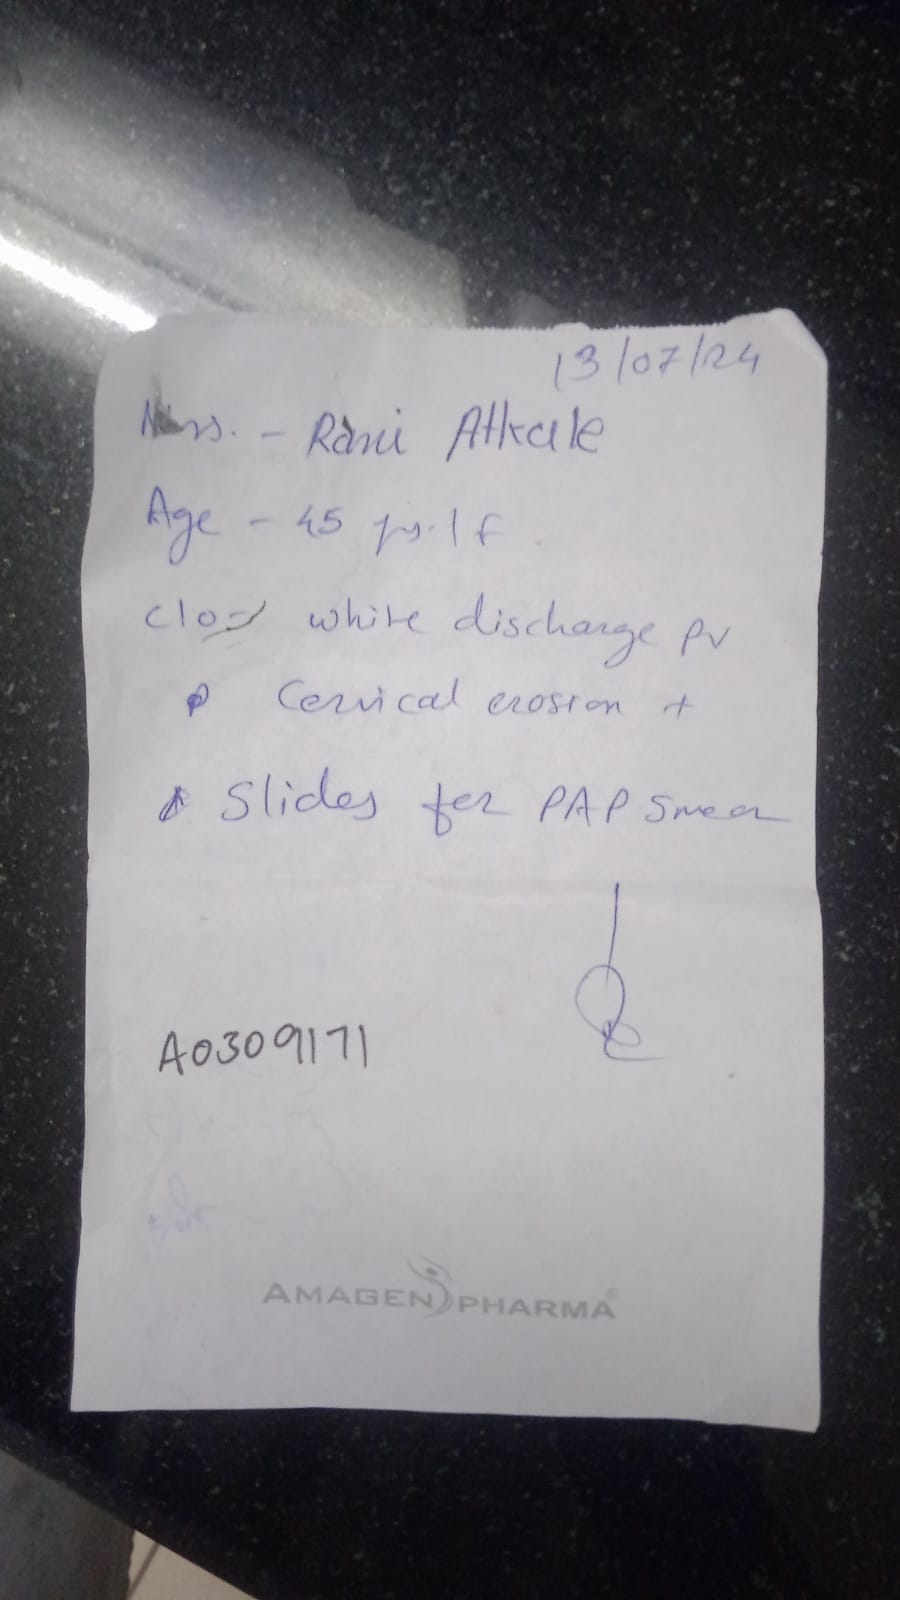 13/07/24
Mrs. - Rani Atkale
Age - 45 yrs. / f
c/o white discharge PV
Cervical erosion +
Slides for PAP Smear
A0309171
AMAGEN PHARMA